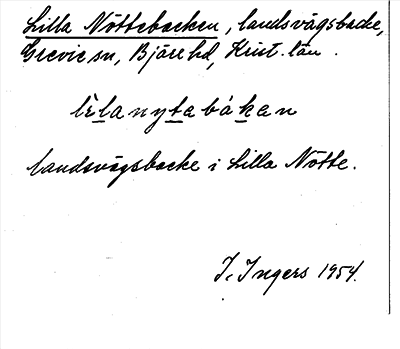 Lilla Nöttebacken, landsvägsbacke,
Grevie sn, Bjäre hd, Krist. län.
lìlanytabákan
landsvägsbacke i Lilla Nötte.
I. Ingers 1954.